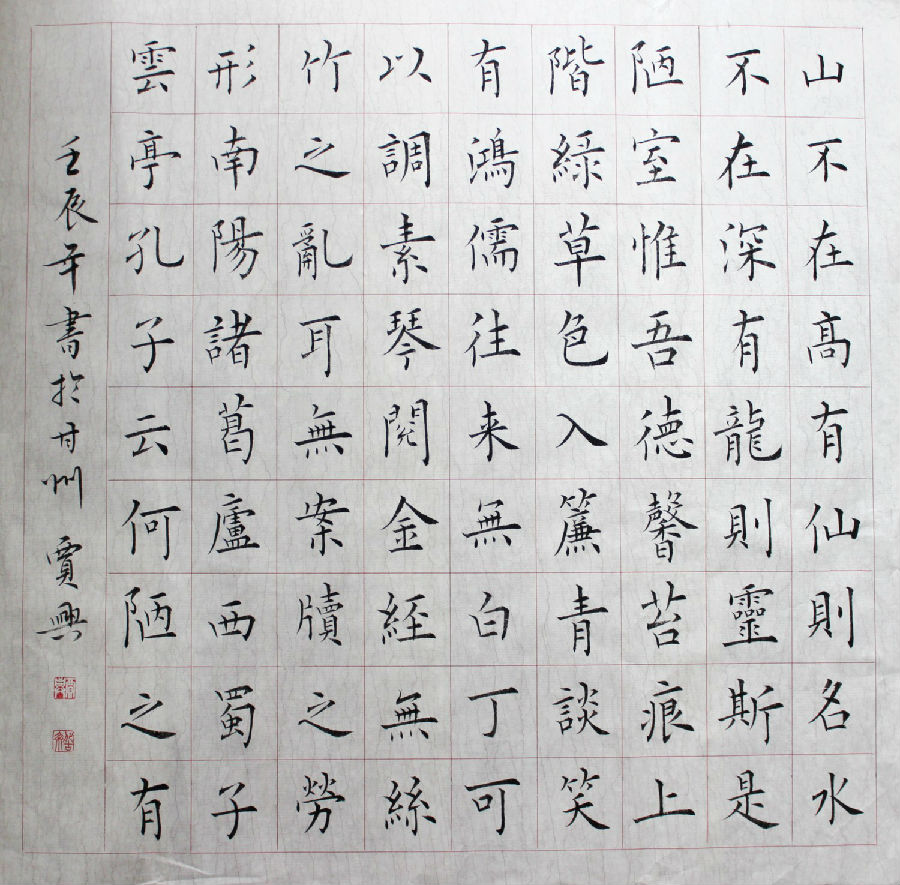 山不在高有仙則名水
不在深有龍則靈斯是
陋室惟吾德馨苔痕上
階綠草色入簾青談笑
有鴻儒往来無白丁可
以調素琴閱金經無絲
竹之亂耳無案牘之勞
形南陽諸葛廬西蜀子
雲亭孔子云何陋之有
壬辰年書於甘州 賈興